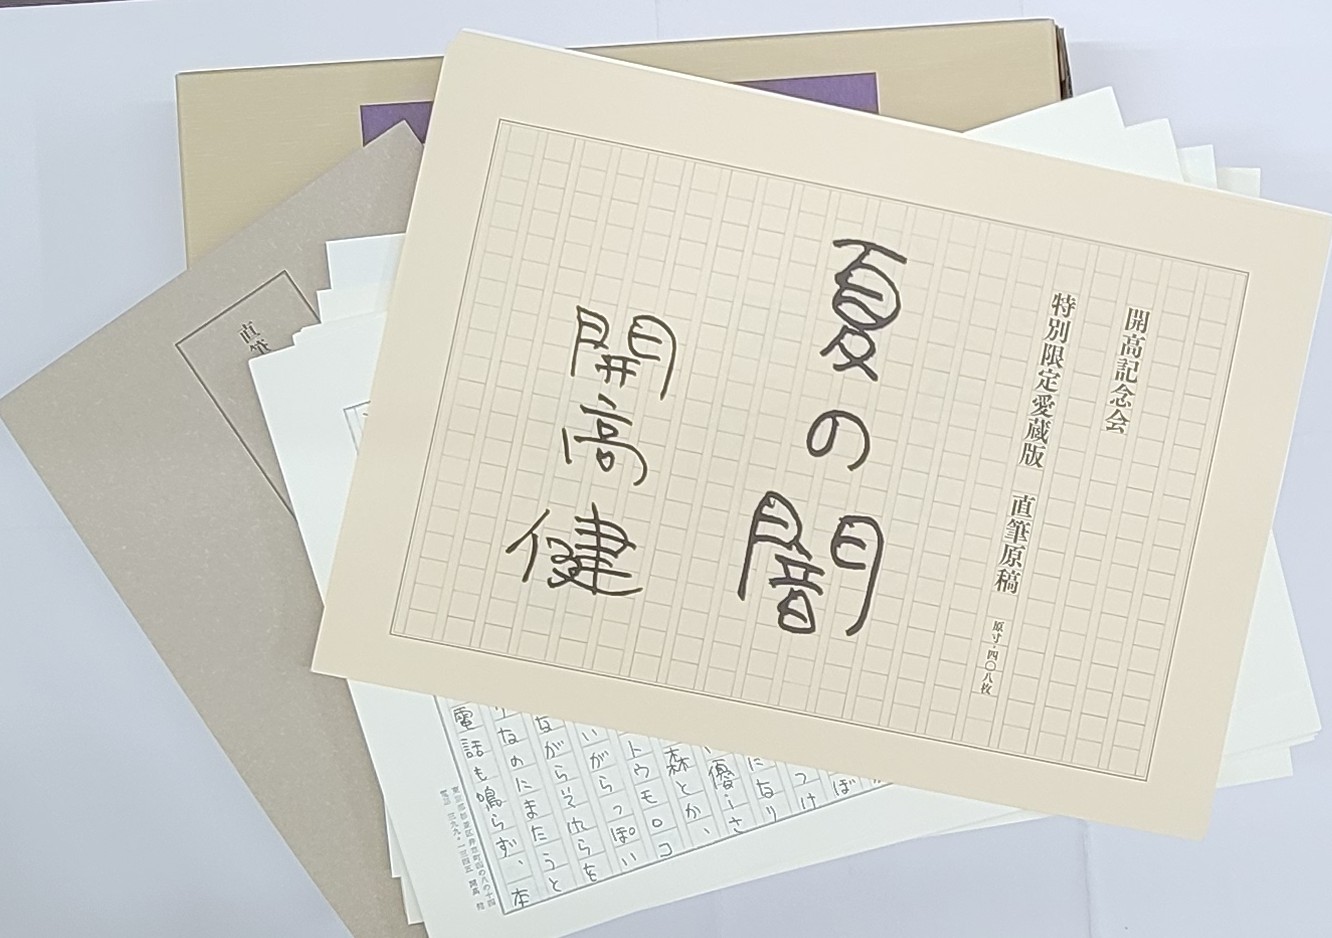 開高記念会
特別限定愛蔵版　直筆原稿　原寸・四〇八枚
夏の闇
開高健
直筆
ぼ
つけ
になり
優しさ
森とか、
トウモロコ
いがらっぽい
ながら
らを
なのにまたうと
電話も鳴らず、本